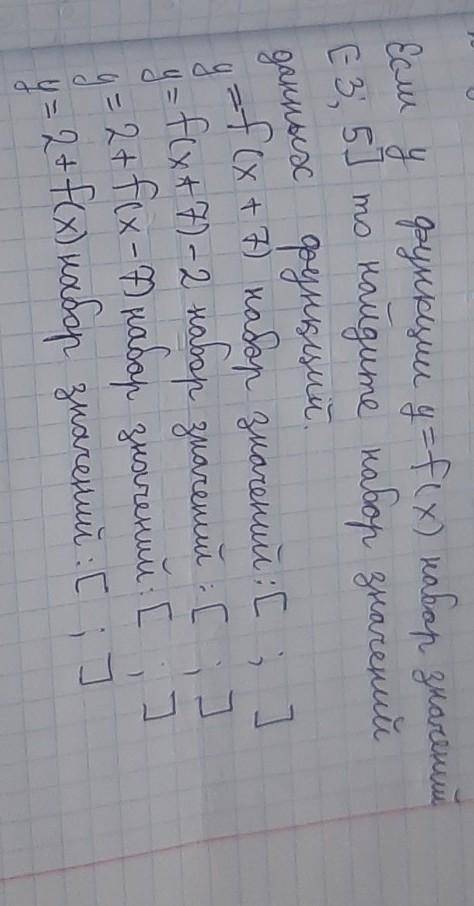 Если у функции y=f(x) набор значений
[-3; 5] то найдите набор значений
данных функций.
y=f(x+7) набор значений: [ ; ]
y=f(x+7)-2 набор значений: [ ; ]
y=2+f(x-7) набор значений: [ ; ]
y=2+f(x) набор значений: [ ; ]